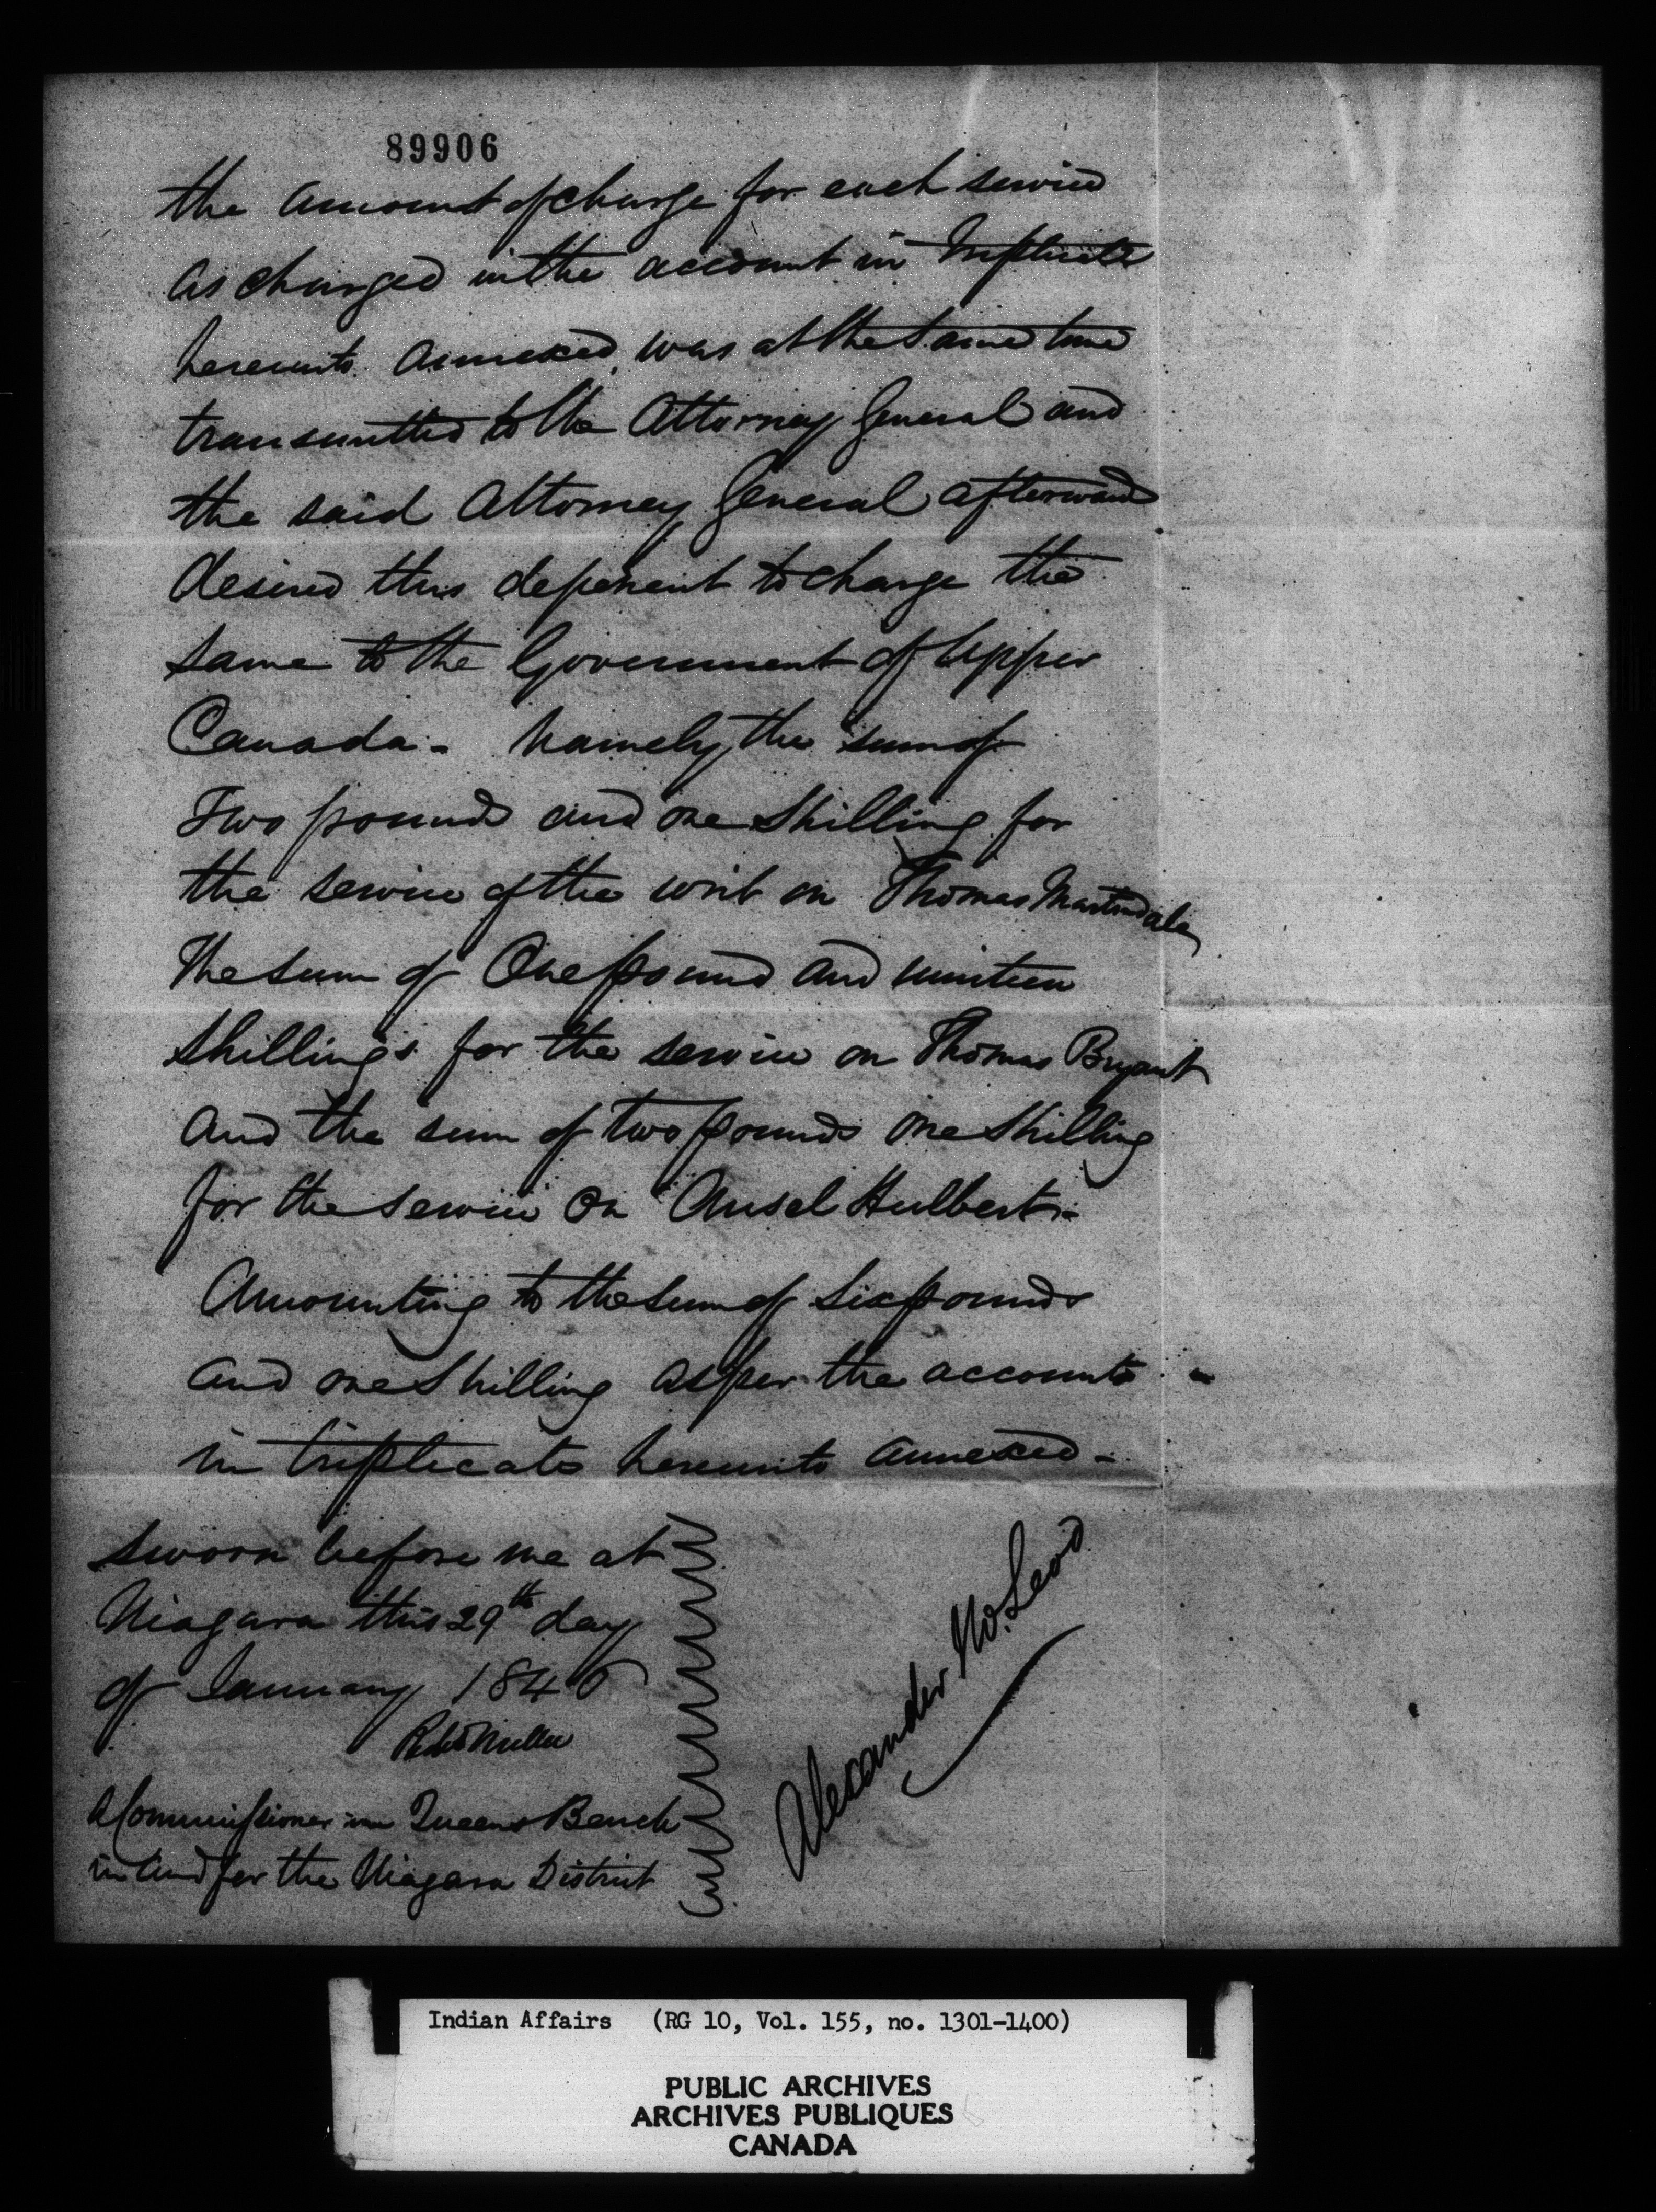 89906
the amount of charge for each service
as charged in the account in triplicate
hereunto annexed, was at the same time
transmitted to the Attorney General and
the said Attorney General afterwards
desired this deponent to charge the
same to the Government of Upper
Canada - namely, the sum of
Two pounds and one shilling for
the service of the writ on Thomas Martindale
The sum of One pound and nineteen
shillings for the service on Thomas Bryant
and the sum of two pounds one shilling
for the service on Ansel Hulbert -
Amounting to the sum of six pounds
and one shilling as per the accounts -
in triplicate hereunto annexed -
Sworn before me at
Niagara this 29th day
of January 1846
Alexander McLeod
Robt Miller
A Commissioner in Queens Bench
in and for the Niagara District
Indian Affairs (RG 10, Vol. 155, no. 1301-1400)
PUBLIC ARCHIVES
ARCHIVES PUBLIQUES
CANADA